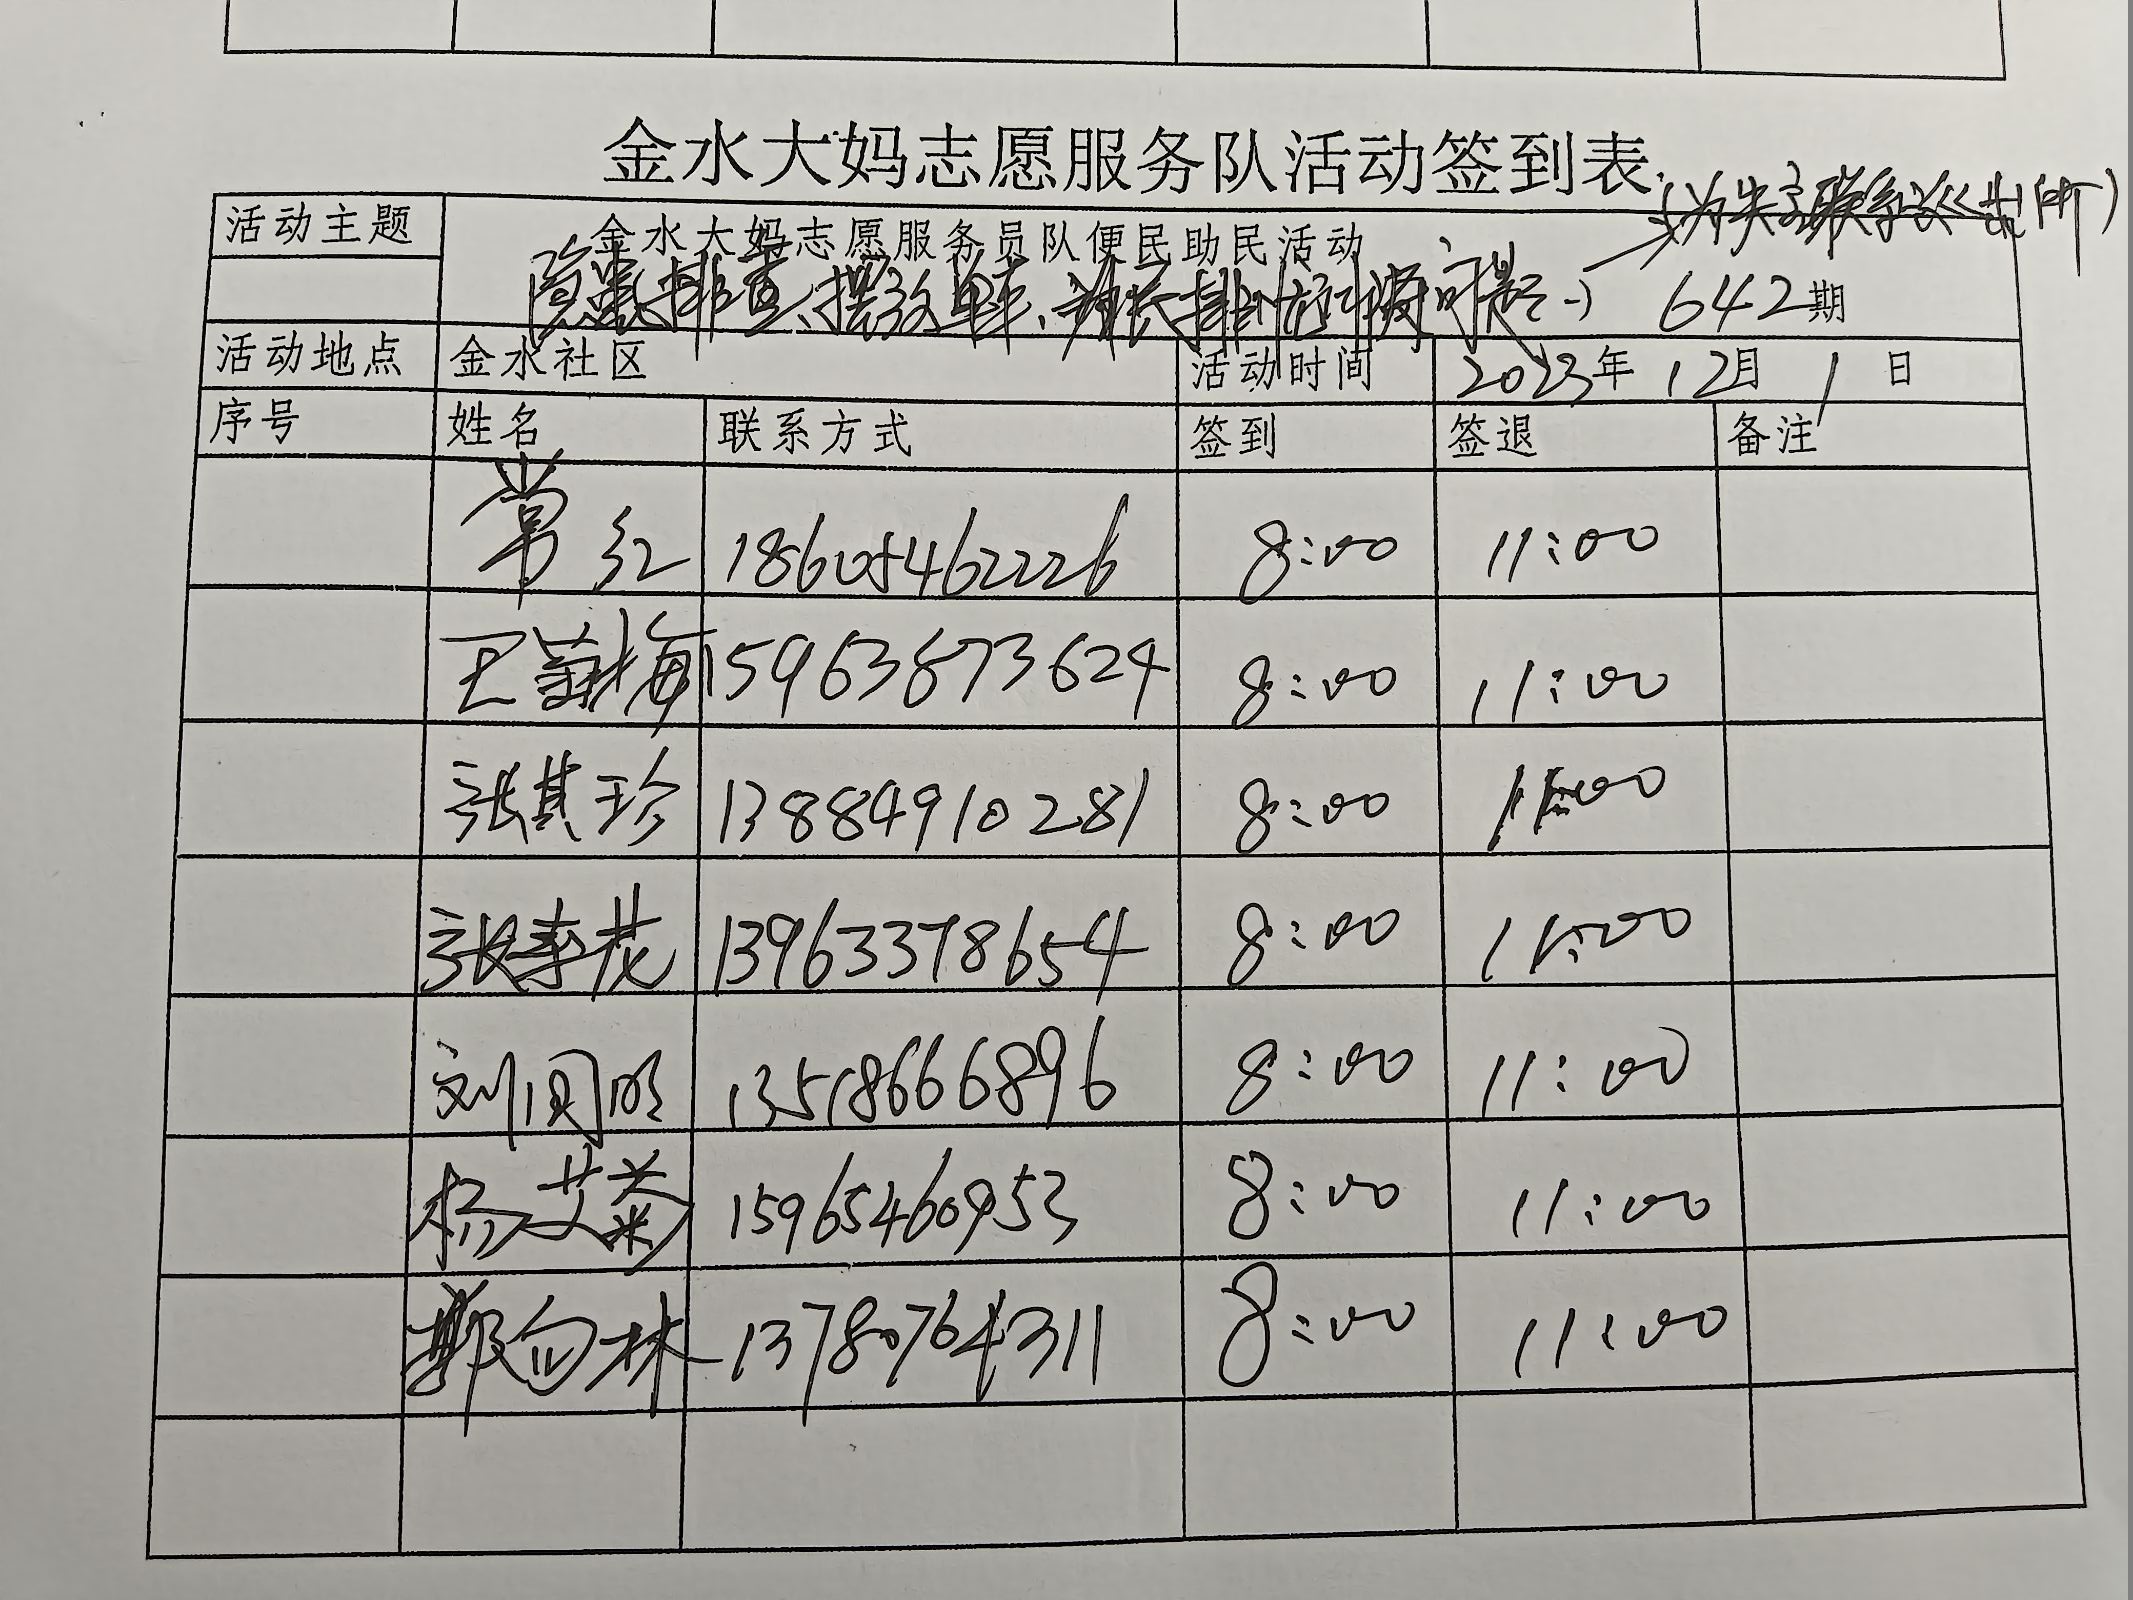 金水大妈志愿服务队活动签到表
活动主题 金水大妈志愿服务员队便民助民活动
隐患排查、摆放单车、 642期
活动地点 金水社区 活动时间 2023年 12月 1 日
序号 姓名 联系方式 签到 签退 备注
常红 18605462226 8:00 11:00
王菊梅 15963873624 8:00 11:00
张其珍 13884910281 8:00 11:00
张季花 13963378654 8:00 11:00
刘同明 13518666896 8:00 11:00
杨艾菊 15965460953 8:00 11:00
林 13780764311 8:00 11:00